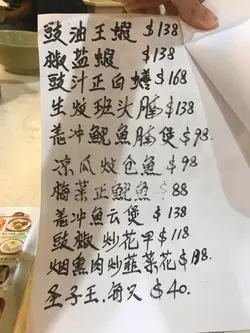 豉油王蝦 $138
椒盐蝦 $138
豉汁正白鳝 $168
生炆班头腩 $138
羌冲鱿魚腩煲 $98.
凉瓜炆仓魚 $98.
梅菜正鱿魚 $88
羌冲魚云煲 $138
豉椒炒花甲 $118.
烟熏肉炒韭菜花 $
圣子王.每又 $40.